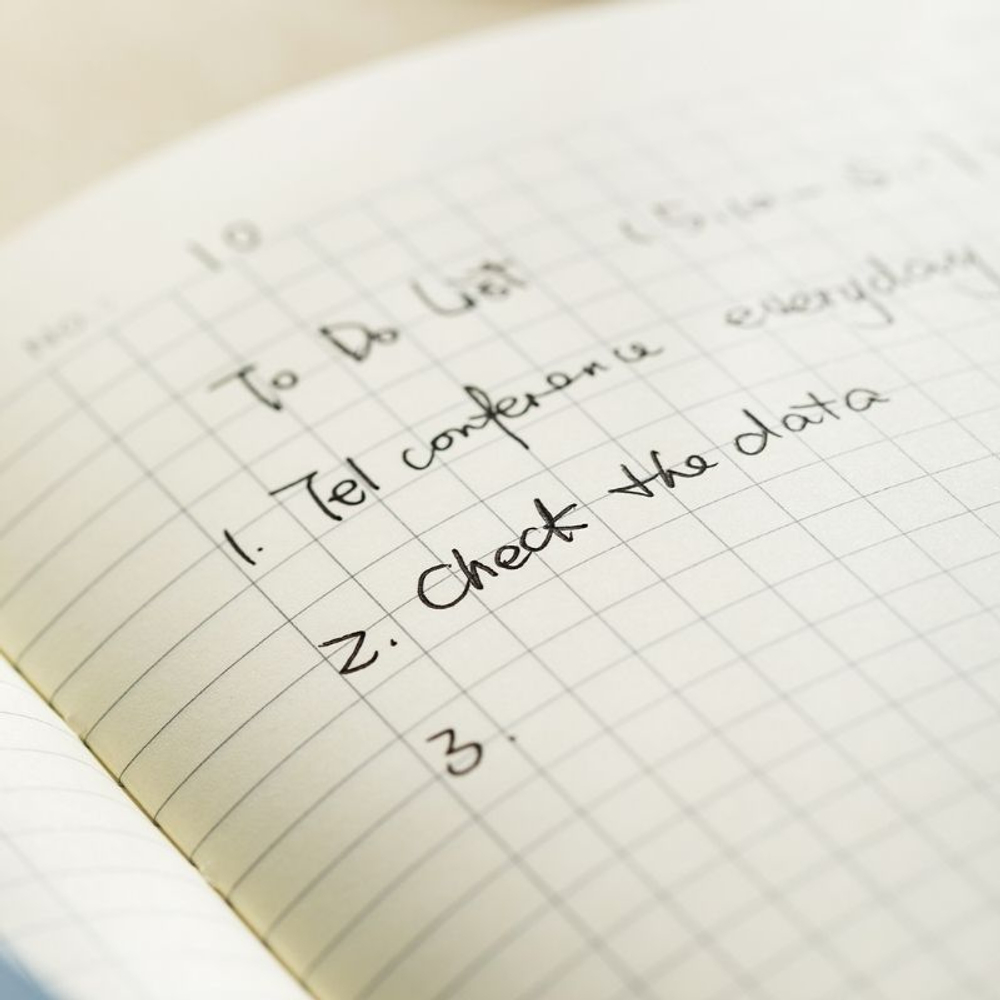 10
To Do List
1. Tel conferance everyday
2. Check the data
3.